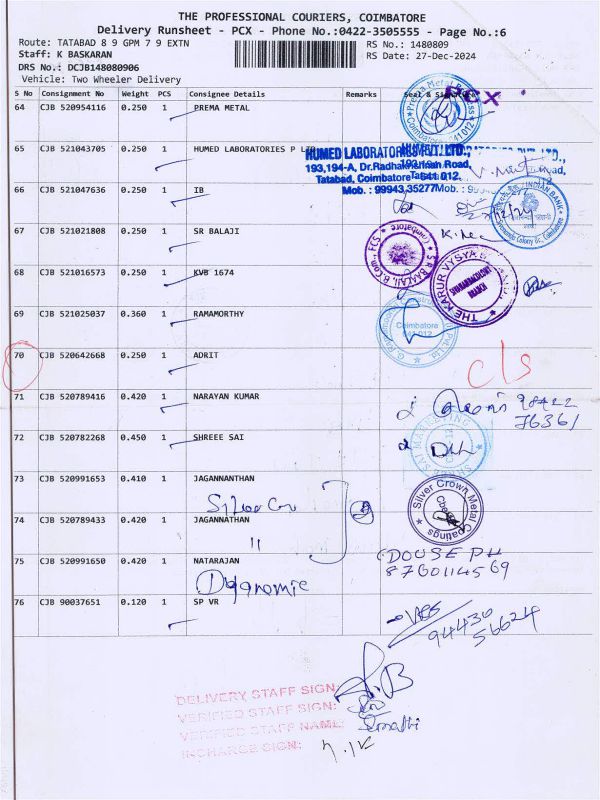 THE PROFESSIONAL COURIERS, COIMBATORE
Delivery Runsheet - PCX - Phone No.:0422-3505555 - Page No.:6
Route: TATABAD 8 9 GPM 7 9 EXTN
RS No.: 1480809
Staff: K BASKARAN
RS Date: 27-Dec-2024
DRS No.: DCJB148080906
Vehicle: Two Wheeler Delivery
S No Consignment No Weight PCS Consignee Details Remarks Seal & Signature
64 CJB 520954116 0.250 1 PREMA METAL
PCX
65 CJB 521043705 0.250 1 HUMED LABORATORIES P LTD
HUMED LABORATORIES PVT. LTD.,
193,194-A, Dr.Radhakrishnan Road,
Tatabad, Coimbatore - 641 012.
Mob. : 99943 35277
66 CJB 521047636 0.250 1 IB
INDIAN BANK
67 CJB 521021808 0.250 1 SR BALAJI
S.R. BALAJI, B.Com., FCS
68 CJB 521016573 0.250 1 KVB 1674
THE KARUR VYSYA BANK
69 CJB 521025037 0.360 1 RAMAMORTHY
Coimbatore
641 012
70 CJB 520642668 0.250 1 ADRIT
C/S
71 CJB 520789416 0.420 1 NARAYAN KUMAR
98422
76361
72 CJB 520782268 0.450 1 SHREEE SAI
SHREE SAI MARKETING
73 CJB 520991653 0.410 1 JAGANNANTHAN
Silver Crown Metal Coatings
74 CJB 520789433 0.420 1 JAGANNATHAN
"
75 CJB 520991650 0.420 1 NATARAJAN
DOUSE PH
8760114569
Dynanomic
76 CJB 90037651 0.120 1 SP VR
94430
56624
DELIVERY STAFF SIGN:
VERIFIED STAFF SIGN:
VERIFIED STAFF NAME:
INCHARGE SIGN: